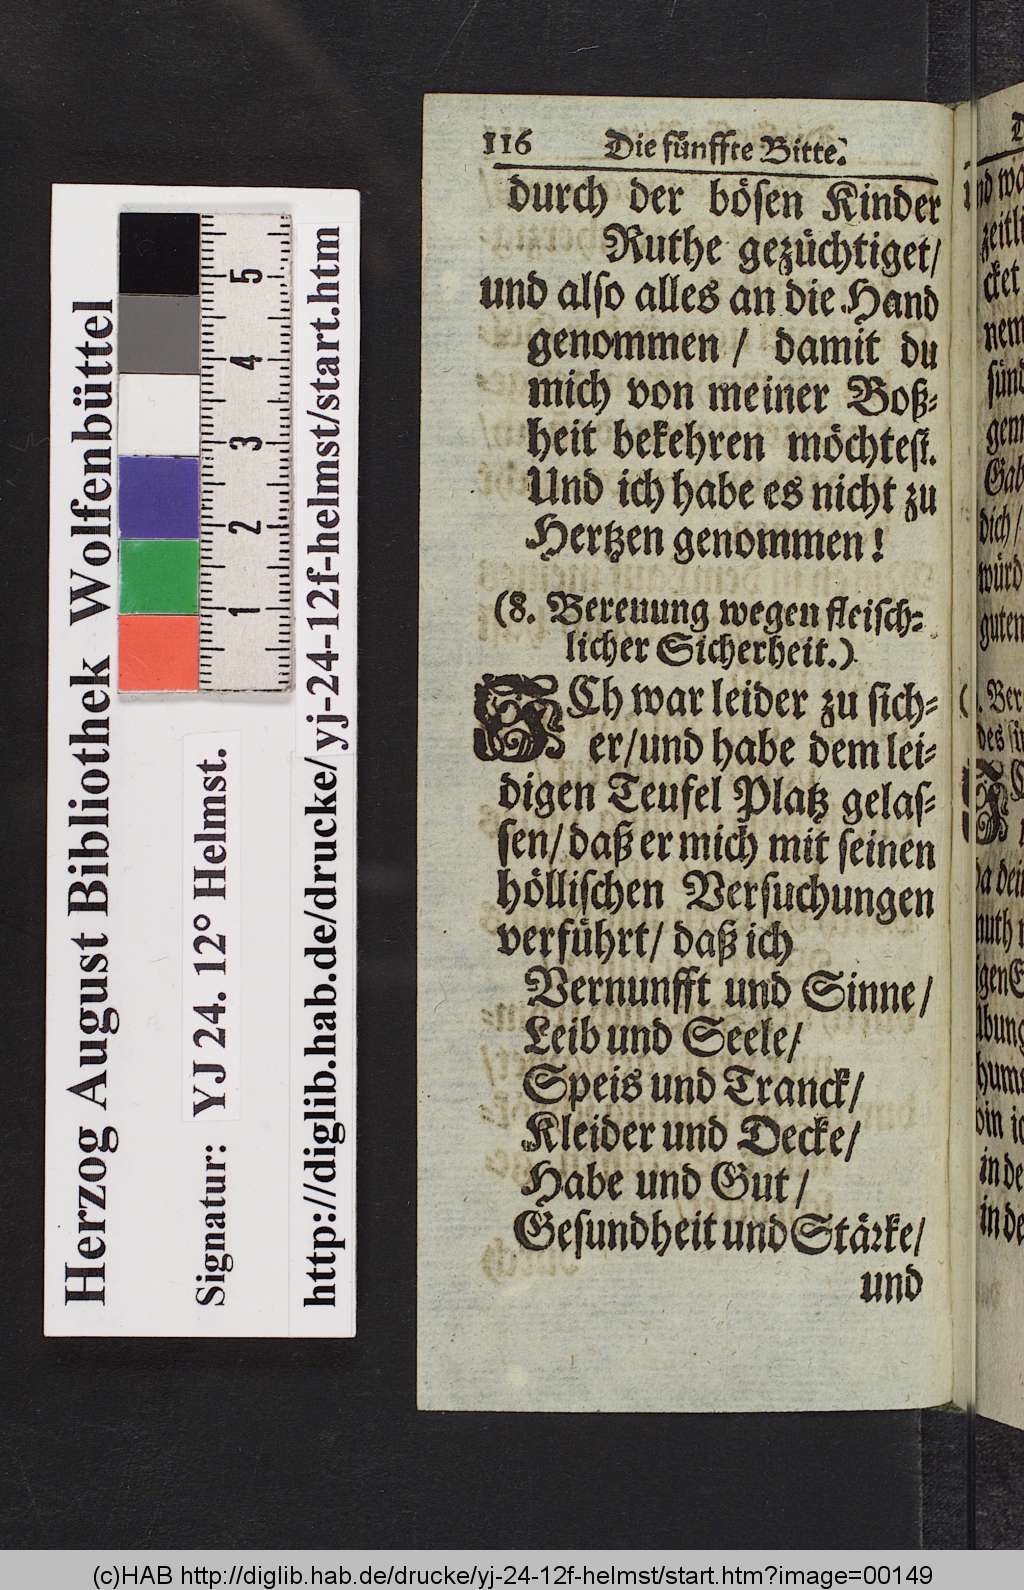 Herzog August Bibliothek Wolfenbüttel
Signatur: YJ 24. 12° Helmst.
http://diglib.hab.de/drucke/yj-24-12f-helmst/start.htm
5
4
3
2
1
116 Die fünffte Bitte.
durch der bösen Kinder
Ruthe gezüchtiget/
und also alles an die Hand
genommen / damit du
mich von meiner Boß-
heit bekehren möchtest.
Und ich habe es nicht zu
Hertzen genommen !
(8. Bereuung wegen fleisch-
licher Sicherheit.)
ICh war leider zu sich-
er/und habe dem lei-
digen Teufel Platz gelas-
sen/ daß er mich mit seinen
höllischen Versuchungen
verführt/ daß ich
Vernunfft und Sinne/
Leib und Seele/
Speis und Tranck/
Kleider und Decke/
Habe und Gut /
Gesundheit und Stärke/
und
(c)HAB http://diglib.hab.de/drucke/yj-24-12f-helmst/start.htm?image=00149